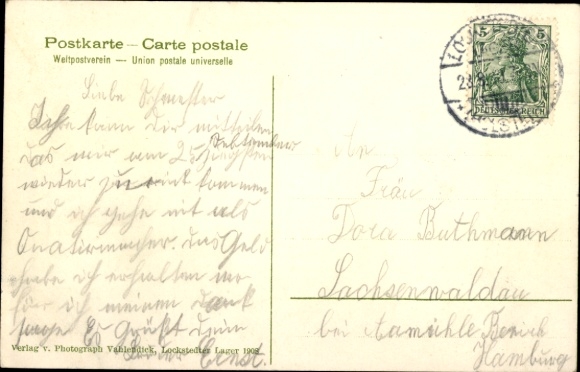 Postkarte – Carte postale
Weltpostverein — Union postale universelle
Liebe Schwester
Ich kann dir mitteilen
das wir am 25 September
wieder zurück kommen
und ich gehe mit als
das Geld
habe ich erhalten wo
für ich meinen dank
sage Es Grüßt dein
Bruder Ernst.
An
Frau
Dora Buthmann
Sachsenwaldau
bei Aumühle Bezirk
Hamburg
5 5
DEUTSCHES REICH
Verlag v. Photograph Vahlendick, Lockstedter Lager 1908